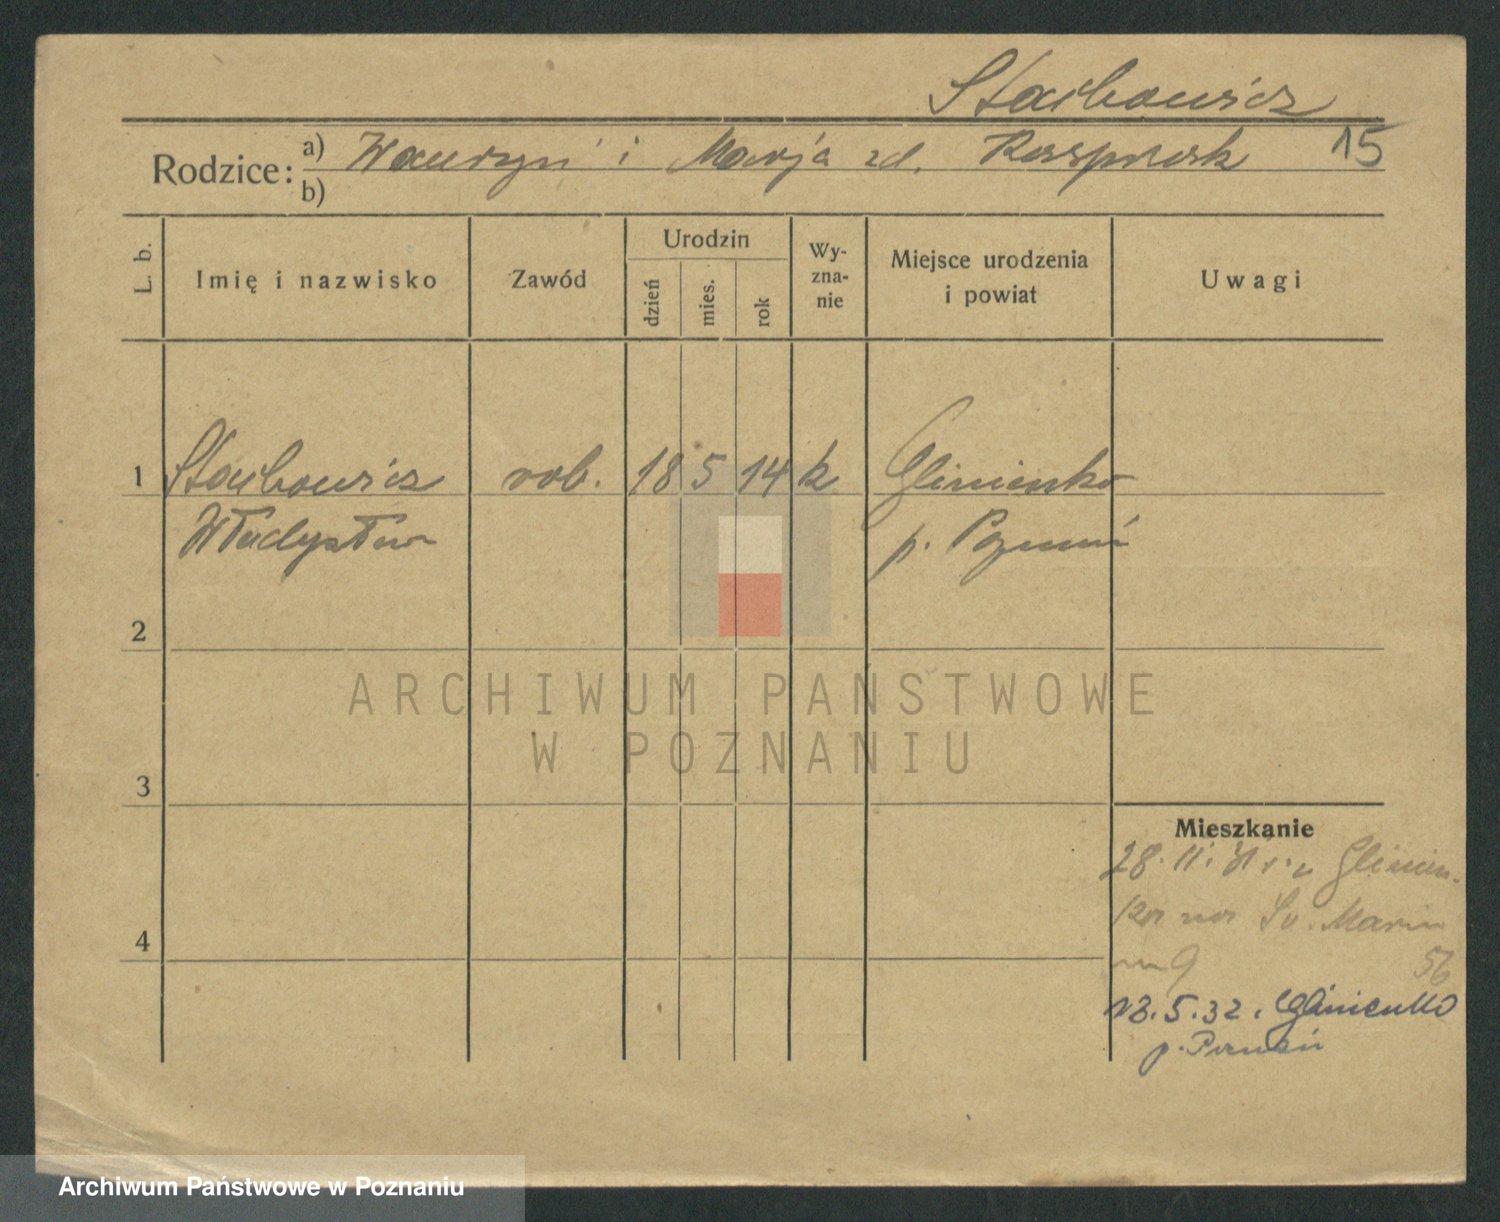 Stachowicz
Rodzice: a) Wawrzyn i Marja zd. 15
b)
L. b.
Imię i nazwisko
Zawód
Urodzin
dzień
mies.
rok
Wy-
zna-
nie
Miejsce urodzenia
i powiat
Uwagi
1 Stachowicz rob. 18 5 14 k Glinienko
Władysław p. Poznań
2
ARCHIWUM PAŃSTWOWE
W POZNANIU
3
Mieszkanie
28. 11. Glinien-
ka na Św. Marcin
9 56
4
12.5.32. Glinienko
p. Poznań
Archiwum Państwowe w Poznaniu